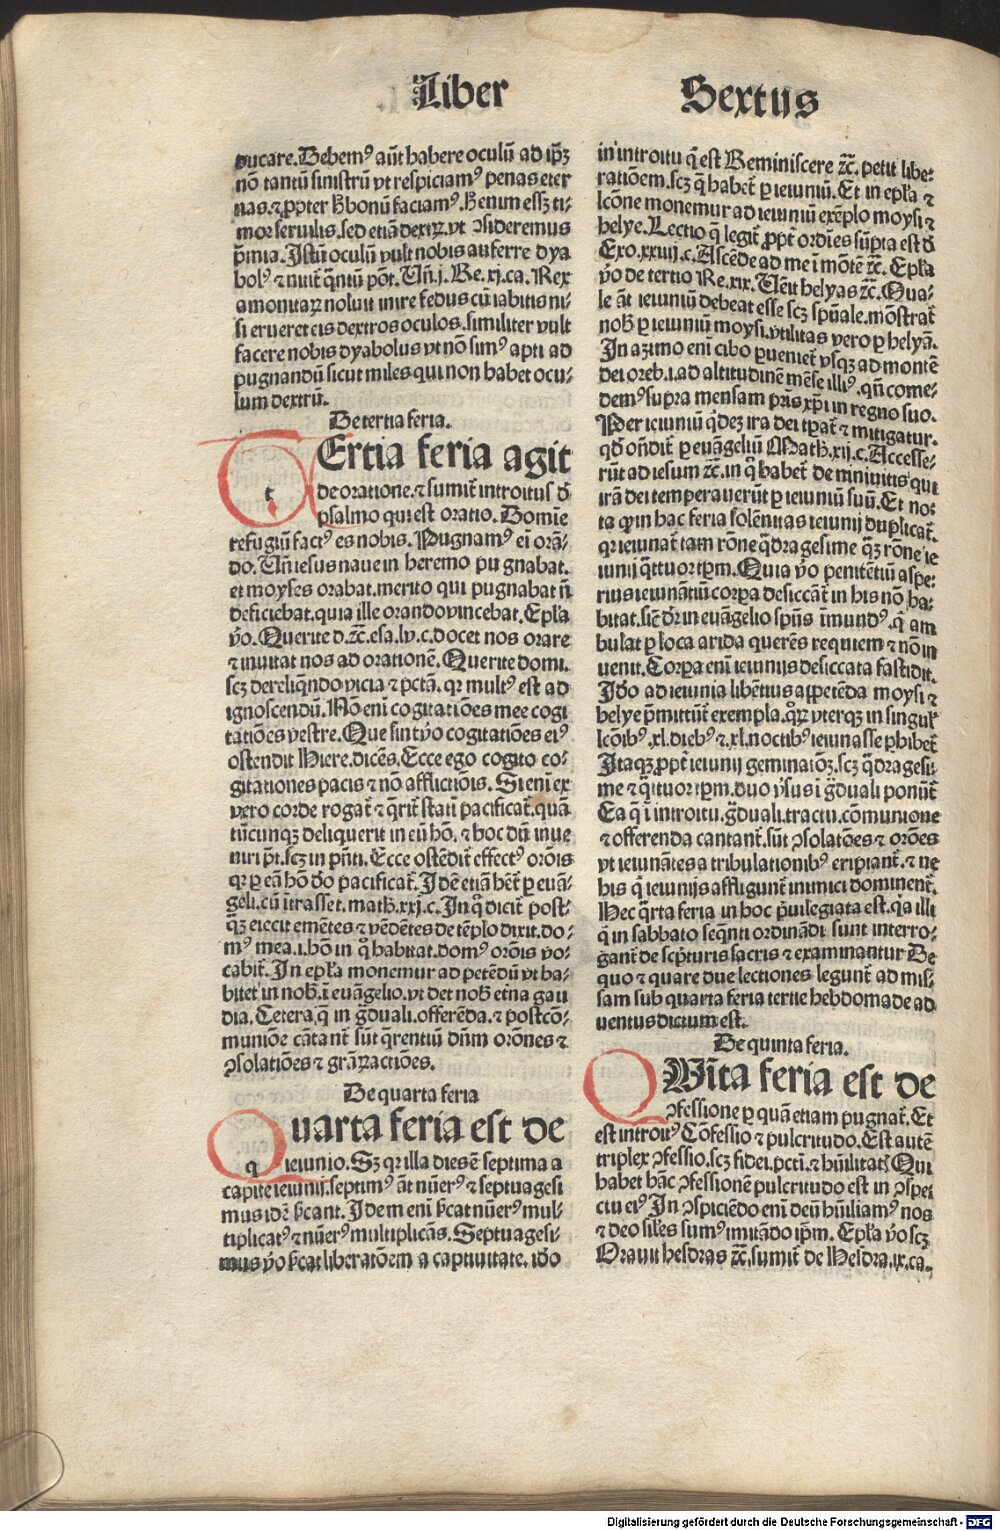 Liber Sextus
ducare. Debemꝰ aūt habere oculū ad ip̄ꝫ
nō tantū sinistrū vt respiciamꝰ penas eter
nas. ⁊ ꝓpter h̄ bonū faciamꝰ. Henim essꝫ ti-
mor seruilis. sed etiā dextrꝝ. vt ꝯsideremus
p̄mia. Istū oculū vult nobis auferre dya
bolꝰ ⁊ nitit̄ q̄ntū pōt. Uñ. j. Re. xj. ca. Rex
amonitaꝝ noluit inire fedus cū iabitis ni-
si erueret eis dextros oculos. similiter vult
facere nobis dyabolus vt nō simꝰ apti ad
pugnandū sicut miles qui non habet ocu-
lum dextrū.
De tertia feria.
tErtia feria agit
de oratione. ⁊ sumit̄ introitus d̄
psalmo qui est oratio. Domīe
refugiū factꝰ es nobis. Pugnamꝰ ei orā-
do. Uñ iesus naue in heremo pugnabat.
et moyses orabat. merito qui pugnabat nō
deficiebat. quia ille orando vincebat. Epła
v̄o. Querite d. ⁊c̄. esa. lv. c. docet nos orare
⁊ inuitat nos ad orationē. Querite domi.
scꝫ derelīq̄ndo vicia ⁊ pctā. qꝛ multꝰ est ad
ignoscendū. Nō eni cogitatiōes mee cogi
tatiōes vestre. Que sint v̄o cogitatiōes eiꝰ
ostendit Hiere. dicēs. Ecce ego cogito co-
gitationes pacis ⁊ nō afflictiōis. Si eni ex
vero corde rogat̄ ⁊ q̄rit̄ stati pacificat̄. quā
tūcunqꝫ deliquerit in eū hō. ⁊ hoc dū inue
niri pt̄. scꝫ in pn̄ti. Ecce ostēdit̄ effectꝰ orōis
qꝛ ꝑ eā hō dō pacificat̄. Idē etiā het̄ ꝑ euā-
geli. cū ītrasset. math. xxj. c. In q̄ dicit̄ post-
q̄ꝫ eiecit emētes ⁊ vēdētes de tēplo dixit. do-
mꝰ mea. i. hō in q̄ habitat. domꝰ orōis vo-
cabit̄. In epła monemur ad petēdū vt ha-
bitet in nob̄. ī euāgelio. vt det nob̄ et̄na gau
dia. Cetera q̄ in ḡduali. offerēda. ⁊ postcō-
muniōe cātant̄ sūt q̄rentiū dn̄m orōnes ⁊
ꝯsolatiōes ⁊ grāꝝactiōes.
De quarta feria
qUarta feria est de
ieiunio. Sꝫ qꝛ illa dies ē septima a
capite ieiunij. septimꝰ āt nūerꝰ ⁊ septuagesi
mus idē s̄cant. Idem eni s̄cat nūerꝰ mul-
tiplicatꝰ ⁊ nūerꝰ multiplicās. Septuagesi-
mus v̄o s̄cat liberatōem a captiuitate. idō
in introitu q̄ est Reminiscere ⁊c̄. petit̄ libe-
ratiōem. scꝫ q̄ habet̄ ꝑ ieiuniū. Et in epła ⁊
lc̄one monemur ad ieiuniū exēplo moysi ⁊
helye. Lectio q̄ legit̄ ꝓpt̄ ordiēs sūpta est d̄
Exo. xxiiij. c. Ascēde ad me ī mōtē ⁊c̄. Epła
v̄o de tertio Re. xix. Uēit helyas ⁊c̄. Qua-
le āt ieiuniū debeat esse scꝫ spūale. mōstrat̄
nob̄ ꝑ ieiuniū moysi. vtilitas vero ꝑ helyā.
In azimo eni cibo ꝑuenit̄ vsqꝫ ad montē
dei oreb. i. ad altitudinē mēse illiꝰ. qn̄ come-
demꝰ supra mensam pr̄is xp̄i in regno suo.
Per ieiuniū q̄deꝫ ira dei tꝑat̄ ⁊ mitigatur.
qd̄ on̄dit̄ ꝑ euāgeliū Math. xij. c. Accesse-
rūt ad iesum ⁊c̄. in q̄ habet̄ de niniuitis qui
irā dei temperauerūt ꝑ ieiuniū suū. Et no-
ta ꝙ in hac feria solēnitas ieiunij duplicat̄
qꝛ ieiunat̄ tam rōne q̄dragesime q̄ꝫ rōne ie
iunij q̄ttuor tꝑm. Quia v̄o penitētiū aspe-
rius ieiunātiū corpora desiccāt̄ in his nō ha-
bitat. sic̄ dr̄ in euāgelio spūs īmundꝰ. q̄ am
bulat ꝑ loca arida querēs requiem ⁊ nō in
uenit. Corpora eni ieiunijs desiccata fastidit.
Idō ad ieiunia libētius appetēda moysi ⁊
helye p̄mittūt̄ exempla. q̄ꝝ vterqꝫ in singul̓
lc̄oibꝰ. xl. diebꝰ ⁊. xl. noctibꝰ ieiunasse ꝑhibet̄
Itaqꝫ ꝓpt̄ ieiunij geminatōꝫ. scꝫ q̄dragesi-
me ⁊ q̄ttuor tꝑm. duo v̄sus i ḡduali ponūt̄
Ea q̄ ī introitu. ḡduali. tractu. cōmunione
⁊ offerenda cantant̄. sūt ꝯsolatōes ⁊ orōes
vt ieiunātes a tribulationibꝰ eripiant̄. ⁊ ne
his q̄ ieiunijs affligunt̄ inimici dominent̄.
Hec q̄rta feria in hoc p̄uilegiata est. q̄a illi
q̄ in sabbato seq̄nti ordinādi sunt interro-
gant̄ de sc̄pturis sacris ⁊ examinantur De
quo ⁊ quare due lectiones legunt̄ ad mis-
sam sub quarta feria tertie hebdomade ad
uentus dictum est.
De quinta feria.
QUīta feria est de
ꝯfessione ꝑ quā etiam pugnat̄. Et
est introitꝰ Cōfessio ⁊ pulcritudo. Est autē
triplex ꝯfessio. scꝫ fidei. pcti. ⁊ hūilitatꝭ Qui
habet hāc ꝯfessionē pulcritudo est in ꝯspe-
ctu eiꝰ In ꝯspiciēdo eni deū hūiliamꝰ nos
⁊ deo siłes sumꝰ imitādo ip̄m. Epła v̄o scꝫ
Orauit hesdras ⁊c̄. sumit̄ de Hesdra. ix. ca.
Digitalisierung gefördert durch die Deutsche Forschungsgemeinschaft - DFG